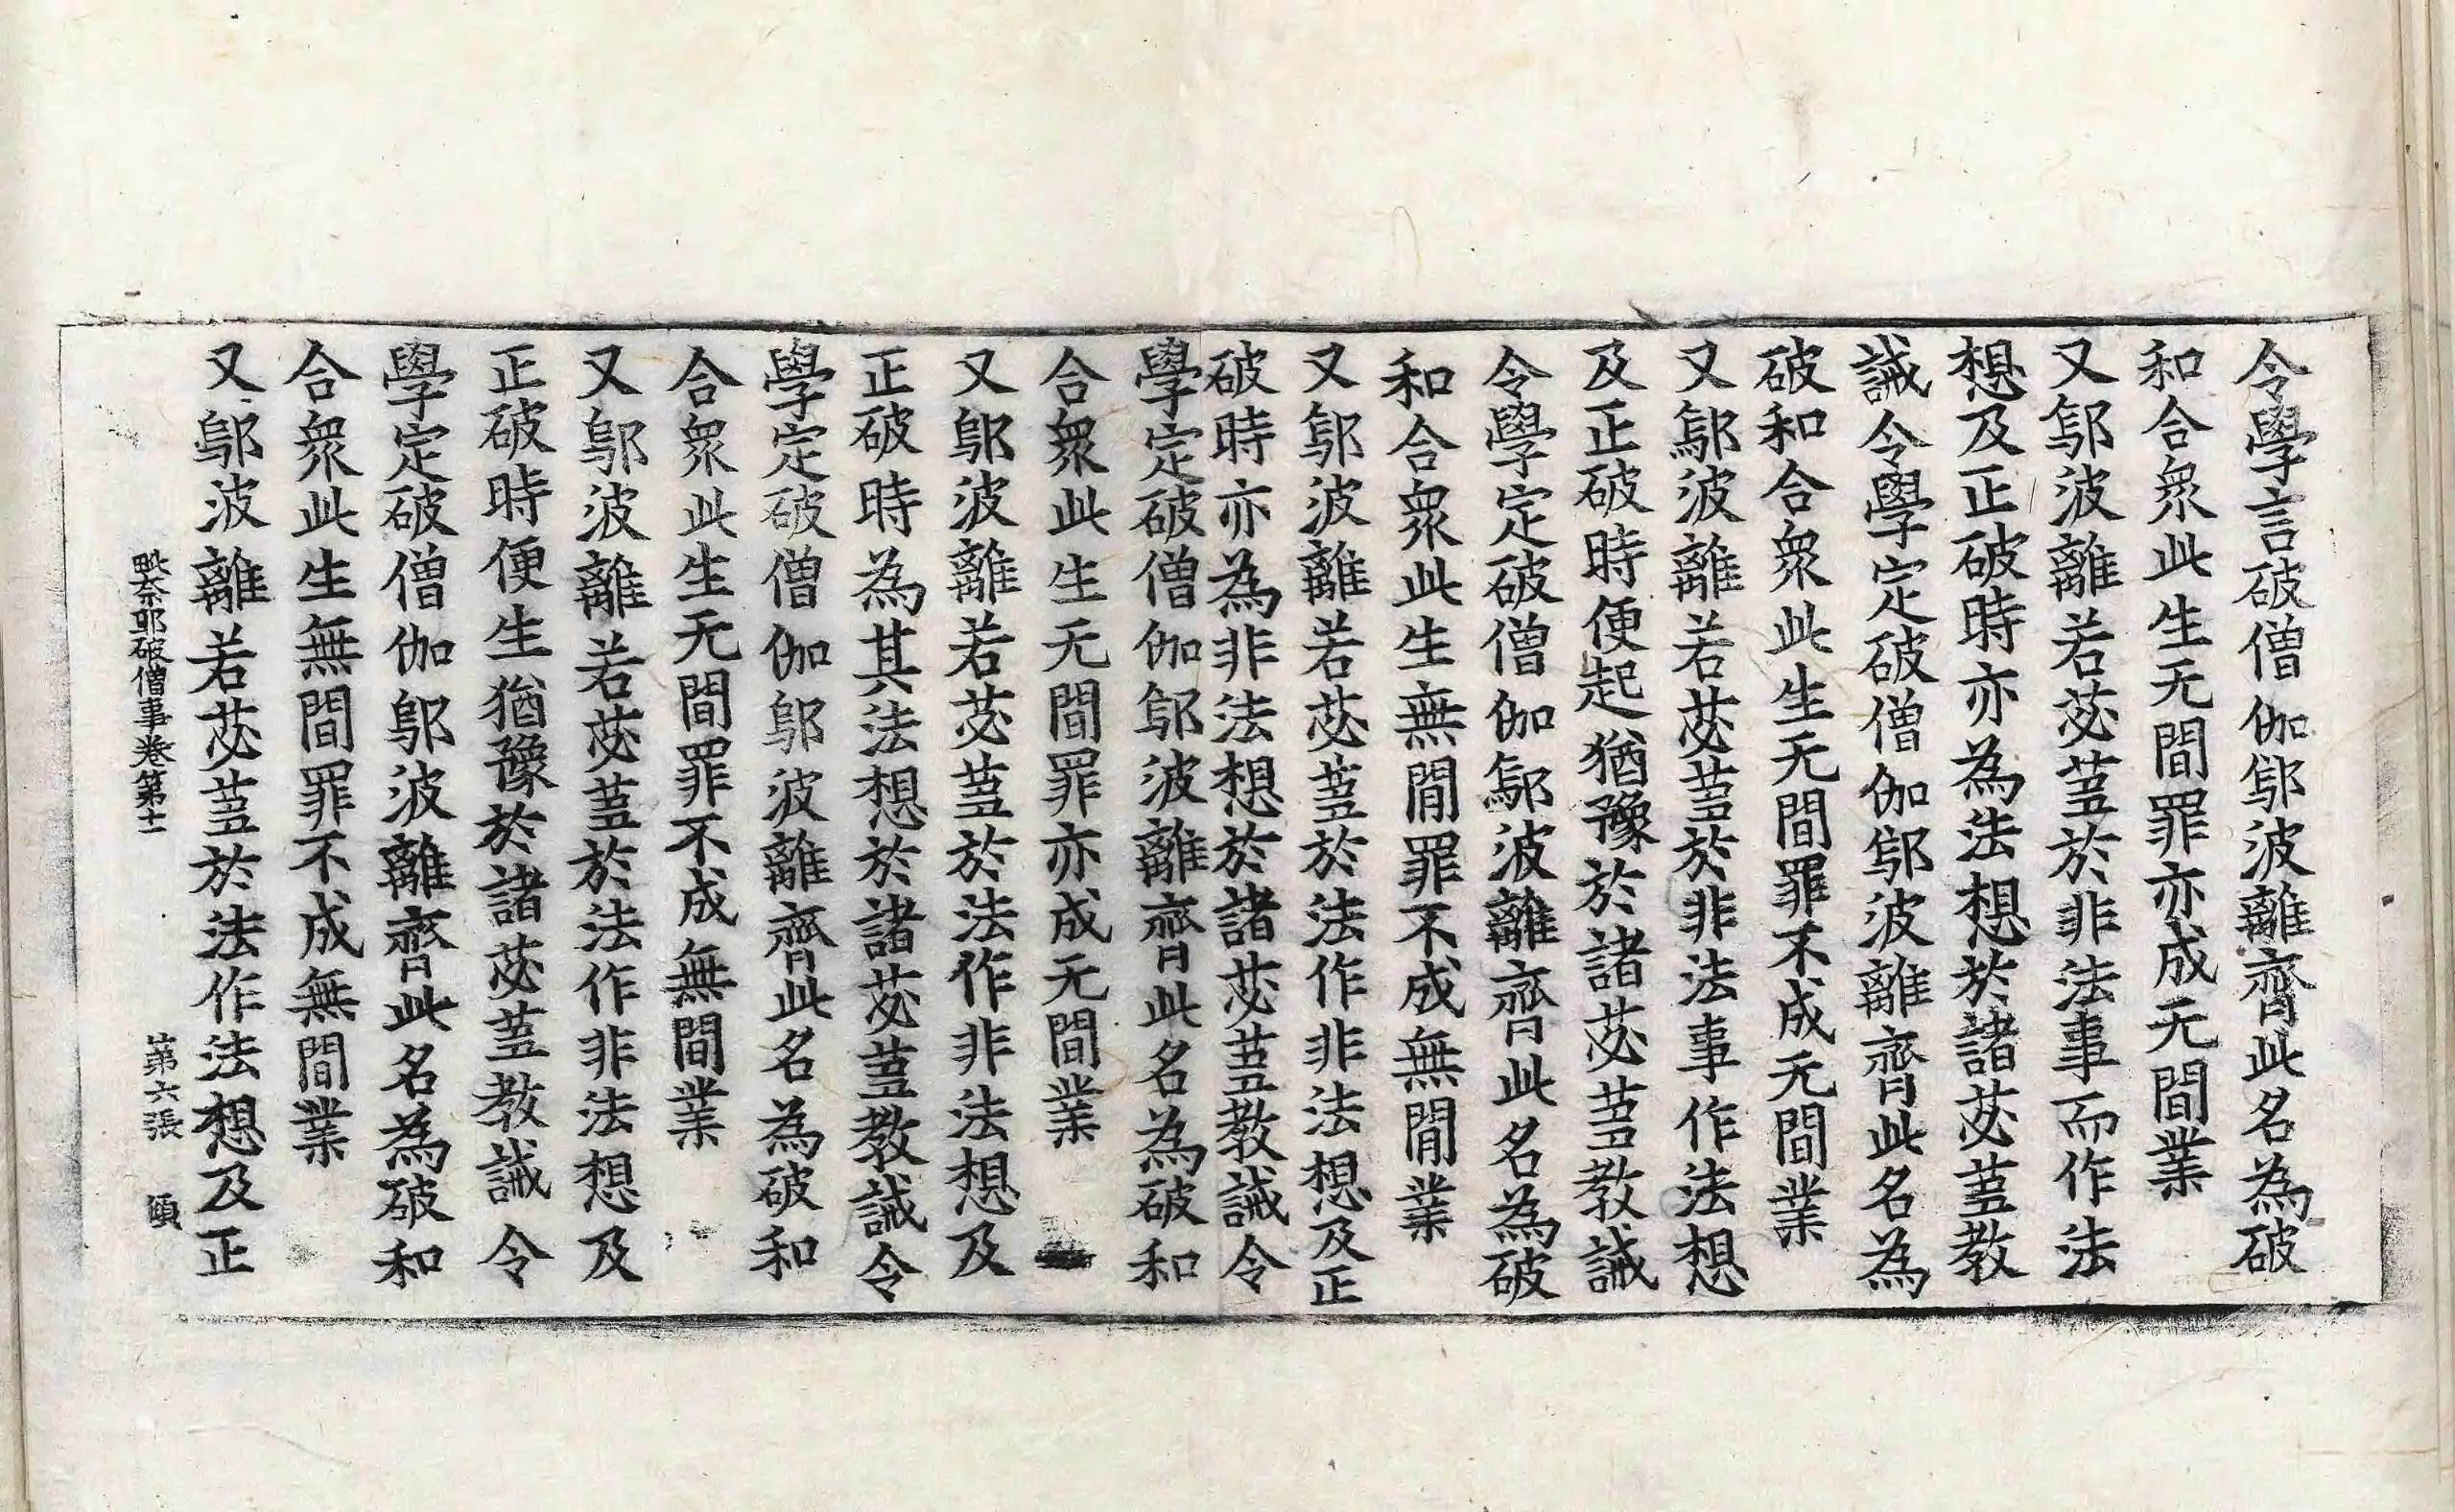 令學言破僧伽鄔波離齊此名為破
和合衆此生无間罪亦成无間業
又鄔波離若苾蒭於非法事而作法
想及正破時亦為法想於諸苾蒭教
誡令學定破僧伽鄔波離齊此名為
破和合衆此生无間罪不成无間業
又鄔波離若苾蒭於非法事作法想
及正破時便起猶豫於諸苾蒭教誡
令學定破僧伽鄔波離齊此名為破
和合衆此生無間罪不成無間業
又鄔波離若苾蒭於法作非法想及正
破時亦為非法想於諸苾蒭教誡令
學定破僧伽鄔波離齊此名為破和
合衆此生无間罪亦成无間業
又鄔波離若苾蒭於法作非法想及
正破時為其法想於諸苾蒭教誡令
學定破僧伽鄔波離齊此名為破和
合衆此生无間罪不成無間業
又鄔波離若苾蒭於法作非法想及
正破時便生猶豫於諸苾蒭教誡令
學定破僧伽鄔波離齊此名為破和
合衆此生無間罪不成無間業
又鄔波離若苾蒭於法作法想及正
毗奈耶破僧事卷第十一 第六張 頤